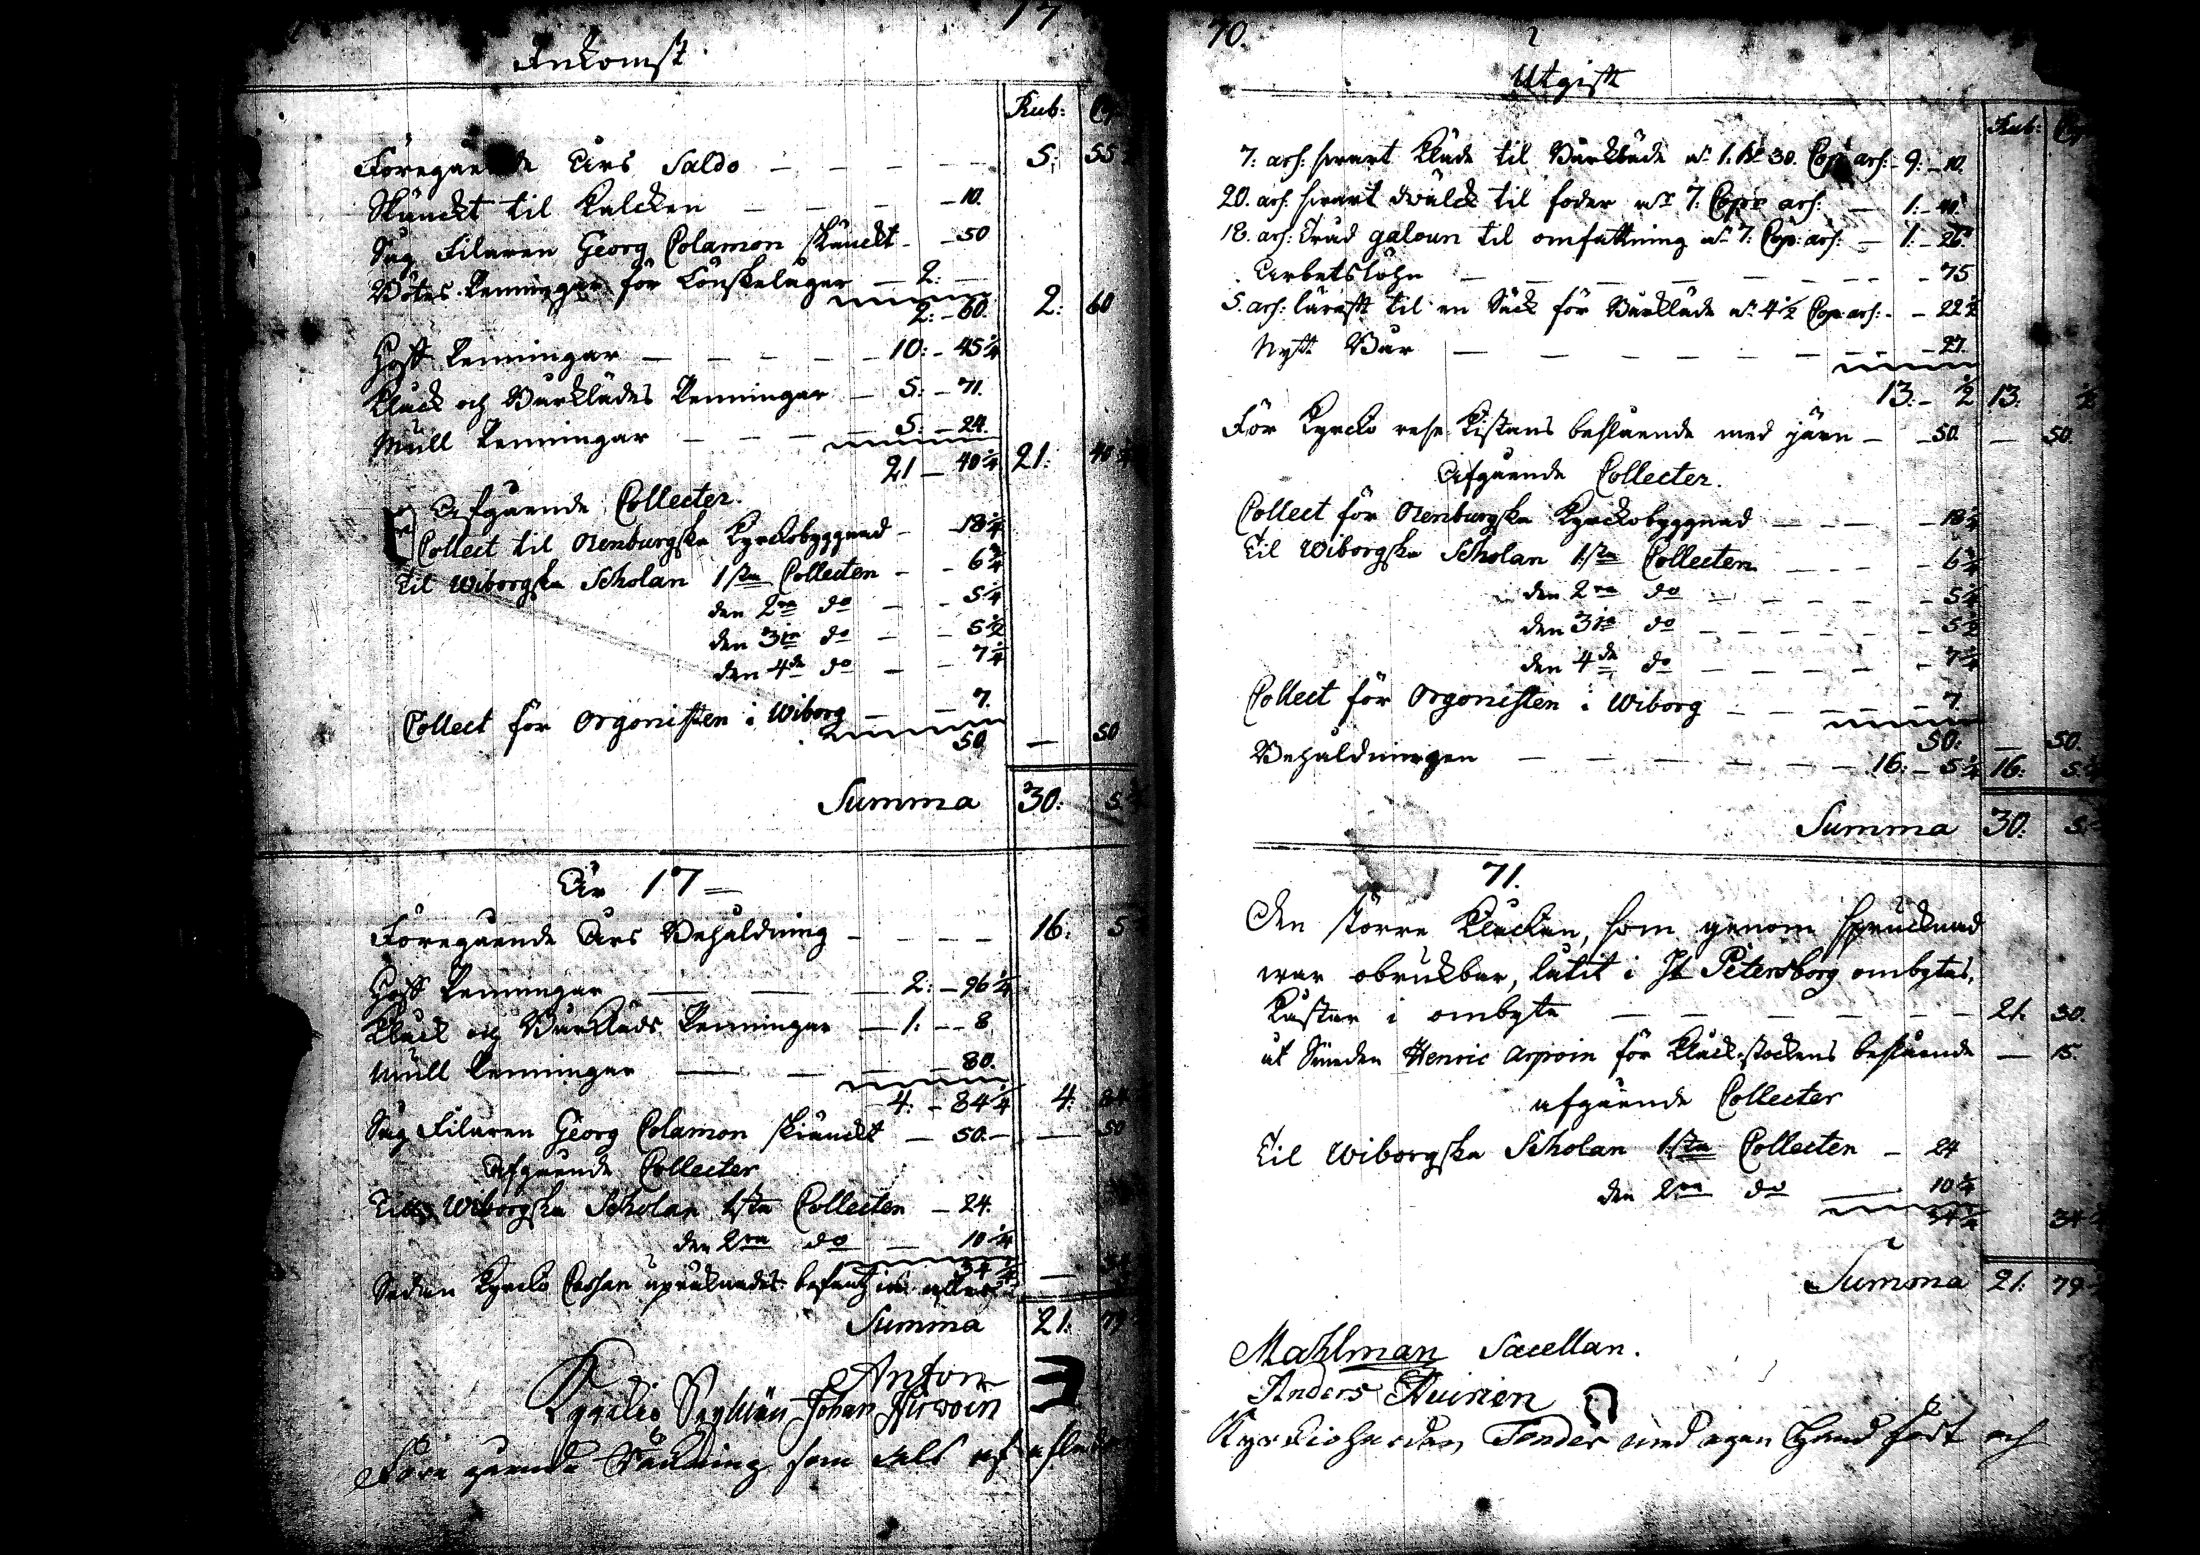 17
Inkomst
Rub: Cop
Föregående Års Saldo — — — — — 5: 55
Skänckt til Kalcken — — — — 10.
Såg Filaren Georg Colamon skänckt — 50
Bötes Penningar för Lönskeläger — 2: —
2: — 60. 2: 60
Hoff Penningar — — — — — 10: — 45 1/4
Klåck och Bårklädes Penningar — 5: — 71.
Mull Penningar — — — 5: — 24.
21 — 40 1/4 21: 40 1/4
Afgående Collecter.
Collect til Orenburgska Kyrckobyggnad — 18 1/4
Til Wiborgska Scholan 1sta Collecten — 6 3/4
den 2ra do — 5 1/4
den 3ia do — 5 1/2
den 4de do — 7 1/4
Collect för Orgonisten i Wiborg — — 7.
50 — 50
Summa 30: 5
År 17
Föregående Års Behåldning — — — — 16: 5
Hoff Penningar — — — 2: — 96 1/4
Klåck och Bårkläds Penningar — 1: — 8
Mull Penningar — — — 80.
4: — 84 1/4 4: 84
Såg Filaren Georg Colamon skiänckt — 50. — — 50
Afgående Collecter
Till Wiborgska Scholan 1sta Collecten — 24.
den 2ra do — 10 1/4
34 1/4 — 34
Sedan Kyrcko Cassan
Summa 21: 79
Anton
Kyrckio Johan Hirvoin
Före gående Räkning som
70.
Utgift
Rub: Cop
7: arsh: svart Kläde til Bårkläde a 1. Rub 30. Cop arsh: — 9: — 10.
20. arsh: svart dwälck til foder a 7: Cop: arsh: — 1: — 40.
18. arsh: Tråd galoun til omfattning a 7: Cop: arsh: — 1: — 26.
Arbetslöhn — — — — — — 75
5. arsh: lärfft til en Säck för Bårkläde a 4 1/2 Cop: arsh: — 22 1/2
Nytt Bår — — — — — — 27.
13: — 1/2 13: 1/2
För Kyrcko Kistans beslående med järn — — 50. — 50.
Afgående Collecter.
Collect för Orenburgska Kyrckobyggnad — — — 18 1/4
Til Wiborgska Scholan 1sta Collecten — — — 6 3/4
den 2ra do — — — — 5 1/4
den 3ia do — — — — 5 1/2
den 4de do — — — — 7 1/4
Collect för Orgonisten i Wiborg — — — — 7.
50: — 50.
Behåldningen — — — — — — 16: — 5 1/4 16: 5
Summa 30. 5
71.
Den större Klåckan, som genom spruknad
war obrukbar, låtit i St Petersborg ombytas,
Kåstar i ombyte — — — — — — 21. 30.
åt Smeden Henric Arpoin för Klåckstockens beslående — 15.
afgående Collecter
Til Wiborgska Scholan 1sta Collecten — 24
den 2ra do — 10 1/4
34 1/4 34
Summa 21: 79
Mahlman Sacellan.
Anders Huinen
Kyrckiohärden med egen Hand och